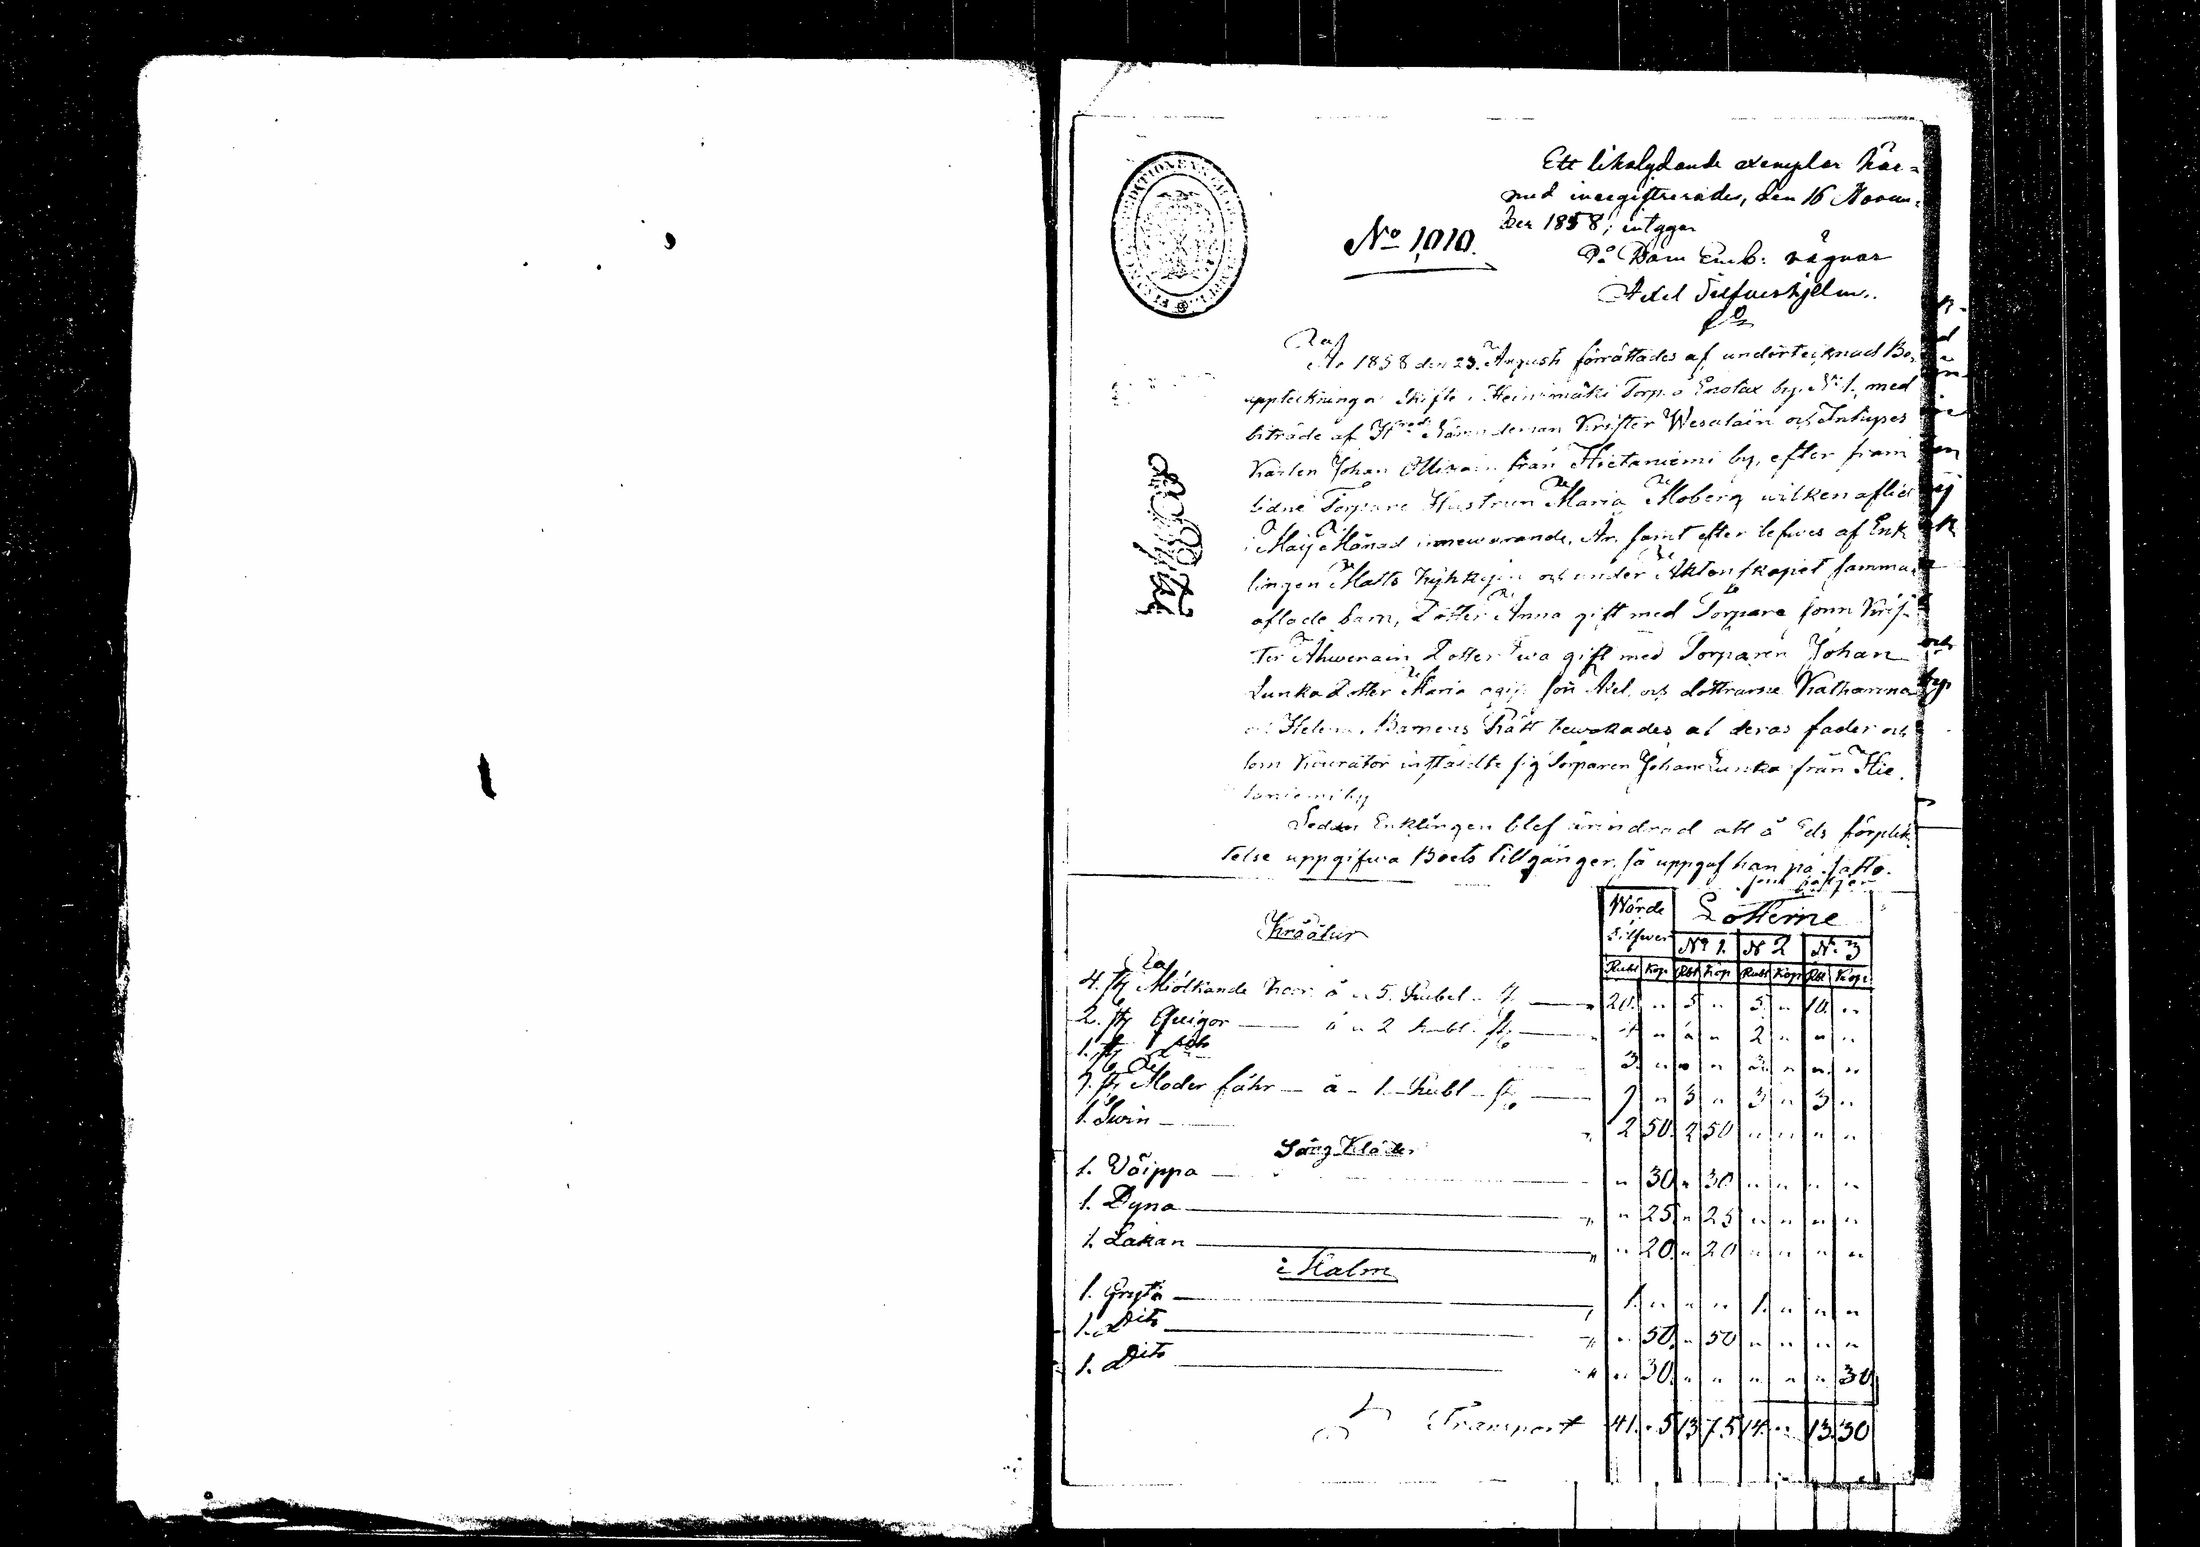 Ett likalydande exemplar här=
med inregistrerades, den 16 Novem=
ber 1858; intygar
No 1,010.
På Dom Emb: vägnar
Axel Silfverhjelm.
År 1858 den 23 Augusti förrättades af undertecknad Bo
uppteckning o Skifte i Heinimäki Torp å Enolax by No 1. med
biträde af Nämndeman Krister Wesalain och Inhyses
Karlen Johan från Hietaniemi by, efter fram
lidne Torpare Hustrun Maria Moberg wilken afled
i Maij Månad innewarande År samt efter lefwes af Enk
lingen Matts och under Äktenskapet samman
aflade barn, Dotter Anna gift med Torpare sonn Kris
ter Ahwenain Dotter Ewa gift med Torparen Johan
Lunka Dotter Maria ogift son Axel och döttrarne Katharina
och Helena. Barnens Rätt bewakades af deras fader och
som Kurator inställdte sig Torparen Johan Lunka från Hie
taniemi by
Sedan Enklingen blef ärindrad att å Eds förplik
telse uppgifwa Boets tillgånger, så uppgaf han på satte
som följer
Wärde Silfwer Lotterne
No 1. N 2 N. 3
Rubl Kop Rbl Kop Rubl Kop Rbl Kop
Kräätur
4. st Miölkande Koor á " 5. Rubel " st " 20. " 5 " 5. " 10. "
2. st Qwigor á " 2 Rubl. st 4 " 2 " 2 " " "
1. st Dito 3. " " " 3. " " "
9. st Moder fåhr á 1 Rubl st 9 " 3 " 3 " 3 "
1. Swin " 2 50. 2 50 " " " "
Säng Kläder
1. Väippa " 30 " 30 " " " "
1. Dyna " " 25 " 25 " " " "
1. Lakan " " 20. " 20 " " " "
i Malm
1. Gryta " 1. " " " 1. " " "
1. Dito " " 50. " 50 " " " "
1. Dito " " 30. " " " " " 30
Transport 41. 5 13 75 14. " 13. 30